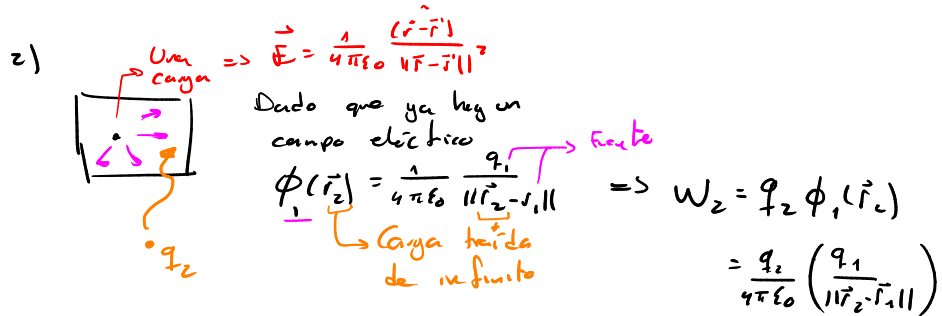 2)
Una carga => \vec{E} = \frac{1}{4\pi\varepsilon_0} \frac{(\hat{\vec{r}-\vec{r}'})}{||\vec{r}-\vec{r}'||^2}
Dado que ya hay un
campo eléctrico
\phi_1(\vec{r}_2) = \frac{1}{4\pi\varepsilon_0} \frac{q_1}{||\vec{r}_2-r_1||} → Fuente
=> W_2 = q_2 \phi_1(\vec{r}_2)
→ Carga traída
de infinito
q_2
= \frac{q_2}{4\pi\varepsilon_0} \left( \frac{q_1}{||\vec{r}_2-\vec{r}_1||} \right)